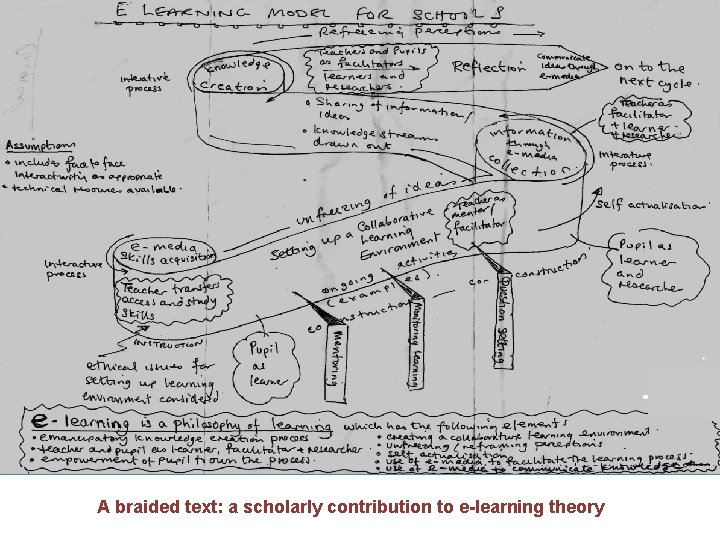 E LEARNING MODEL FOR SCHOOLS
Refreezing perceptions
Knowledge
Creation
Interative
process
Teachers and Pupils
as facilitators
learners and
researchers.
Reflection
Communicate
ideas through
e-media
on to the
next cycle.
• Sharing of information/
Ideas
• Knowledge streams
drawn out
information
through
e-media
collection
Teacher as
facilitator
+ learner
+ researcher
Interative
process.
Assumptions
• includes face to face
Interactivity as appropriate
• technical resources available.
unfreezing of ideas
Setting up a Collaborative
Learning
Environment
Teacher as
mentor/
facilitator
Self actualisation
Pupil as
learner
and
researcher
e-media
skills acquisition
Interative
process
Teacher transfers
access and study
skills
INSTRUCTION
ongoing activities
(examples).
co-construction
co-construction
Mentoring
Monitoring learning
Question setting
Pupil
as
learner
ethical issues for
setting up learning
environment considered
e-learning is a philosophy of learning which has the following elements
• emancipatory knowledge creation process
• teacher and pupil as learner, facilitator + researcher
• empowerment of pupil to own the process.
• creating a collaborative learning environment.
• unfreezing / reframing perceptions
• self actualisation
• use of e-media to facilitate the learning process.
• use of e-media to communicate knowledge
A braided text: a scholarly contribution to e-learning theory